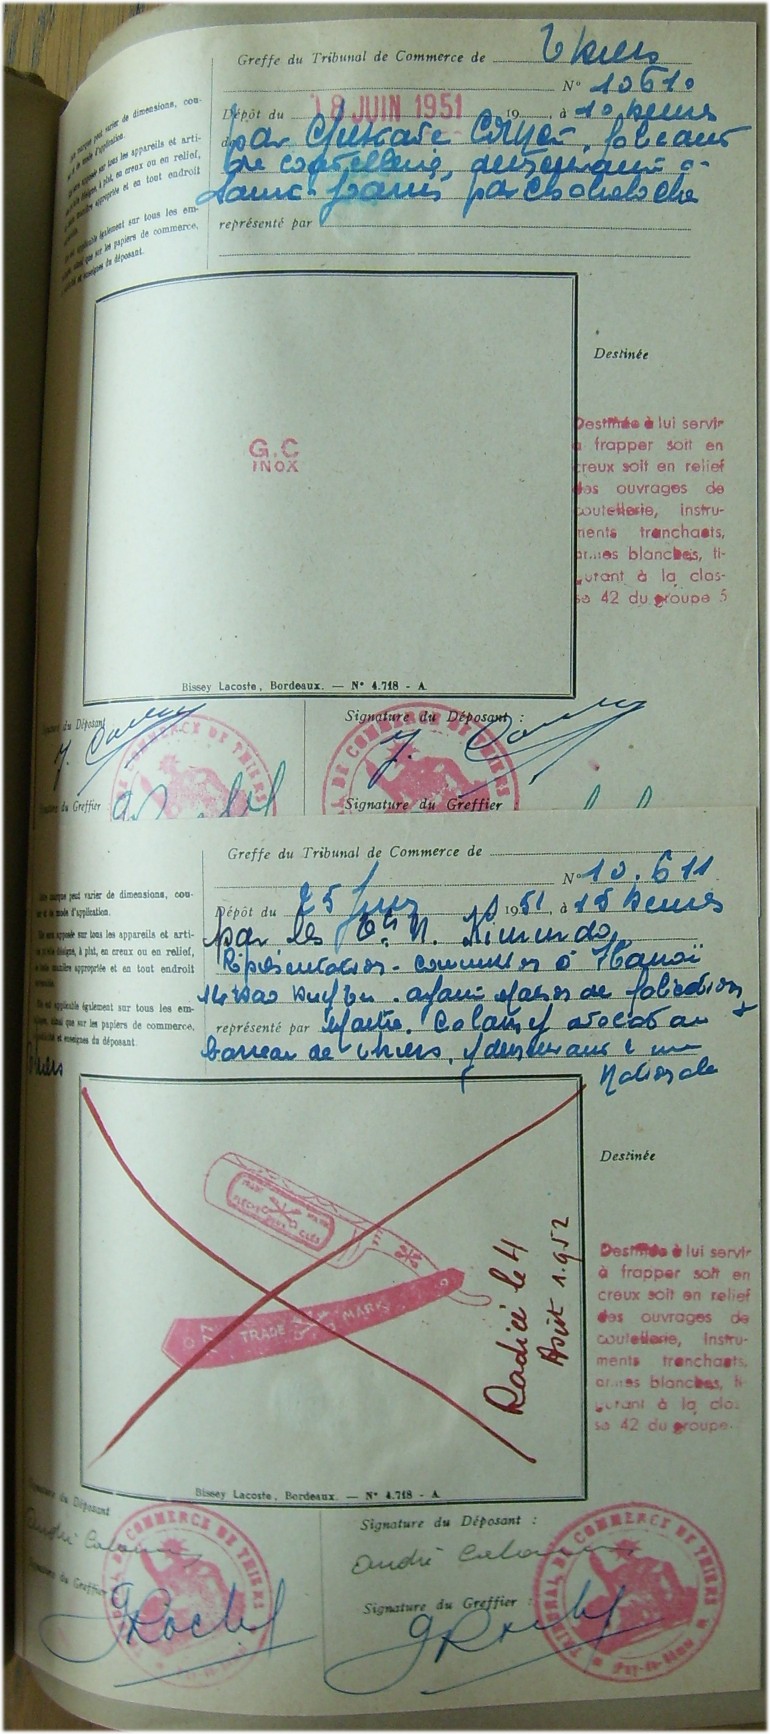 Greffe du Tribunal de Commerce de Thiers
N° 10610
Dépôt du 18 JUIN 1951 19 , à 10 heures
par
de coutellerie, demeurant à
représenté par
marque peut varier de dimensions, cou-
mode d'application.
apposée sur tous les appareils et arti-
à plat, en creux ou en relief,
manière appropriée et en tout endroit
applicable également sur tous les em-
que sur les papiers de commerce,
et enseignes du déposant.
G.C
INOX
Destinée
Destinée à lui servir
à frapper soit en
creux soit en relief
des ouvrages de
coutellerie, instru-
ments tranchants,
armes blanches, fi-
gurant à la clas-
se 42 du groupe 5
Bissey Lacoste, Bordeaux. — N° 4.718 - A
Signature du Déposant
Signature du Déposant :
Signature du Greffier
Signature du Greffier
DE COMMERCE DE THIERS
DE COMMERCE DE THIERS
Greffe du Tribunal de Commerce de
N° 10.611
Dépôt du 25 Juin 1951, à 15 heures
par les Ets N.
Représentation - commission à Hanoï
représenté par Maître. avocat au
barreau de Thiers, demeurant
Nationale
Thiers
marque peut varier de dimensions, cou-
et de mode d'application.
Elle sera apposée sur tous les appareils et arti-
désigne, à plat, en creux ou en relief,
toute manière appropriée et en tout endroit
convenable.
Elle est applicable également sur tous les em-
ballages, ainsi que sur les papiers de commerce,
publicité et enseignes du déposant.
TRADE MARK
CLES
77
77 TRADE MARK
Radiée le 4
Août 1.952
Destinée
Destinée à lui servir
à frapper soit en
creux soit en relief
des ouvrages de
coutellerie, instru-
ments tranchants,
armes blanches, fi-
gurant à la clas-
se 42 du groupe
Bissey Lacoste, Bordeaux. — N° 4.718 - A
Signature du Déposant
Signature du Déposant :
André
André
Signature du Greffier
Signature du Greffier :
DE COMMERCE DE THIERS
TRIBUNAL DE COMMERCE DE THIERS
Puy-de-Dôme